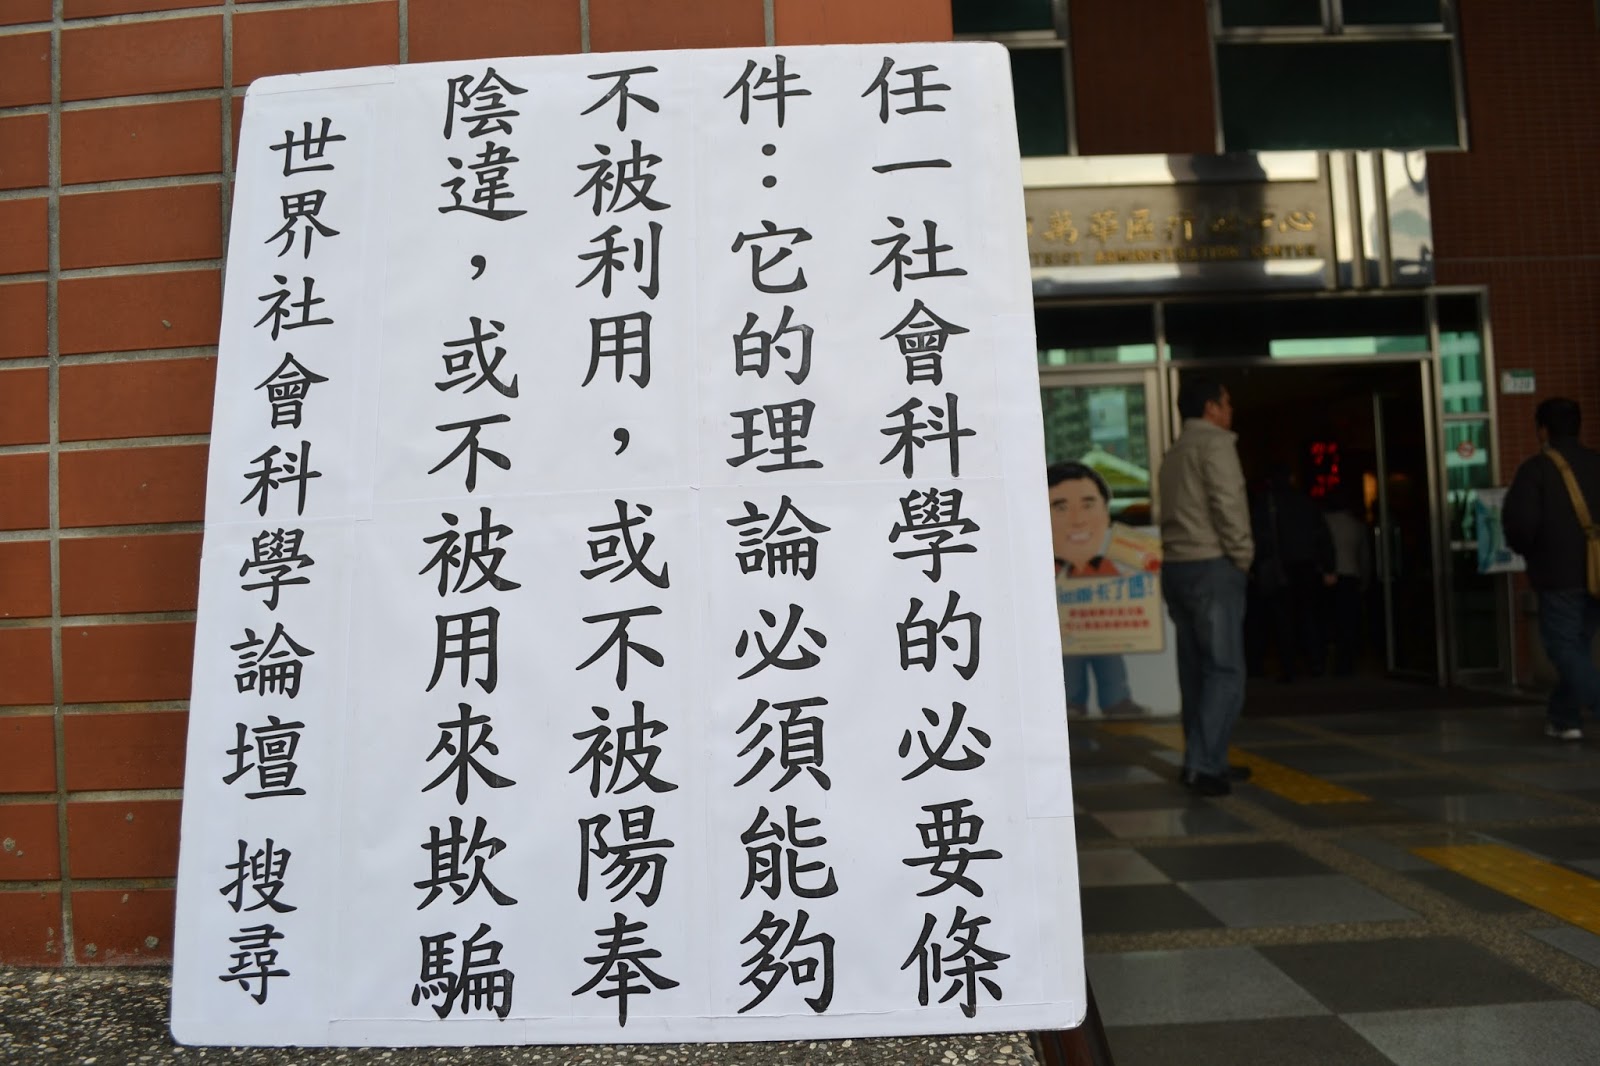 任一社會科學的必要條
件：它的理論必須能夠
不被利用，或不被陽奉
陰違，或不被用來欺騙
世界社會科學論壇 搜尋
萬華區行政中心
DISTRICT ADMINISTRATION CENTER
卡了嗎！